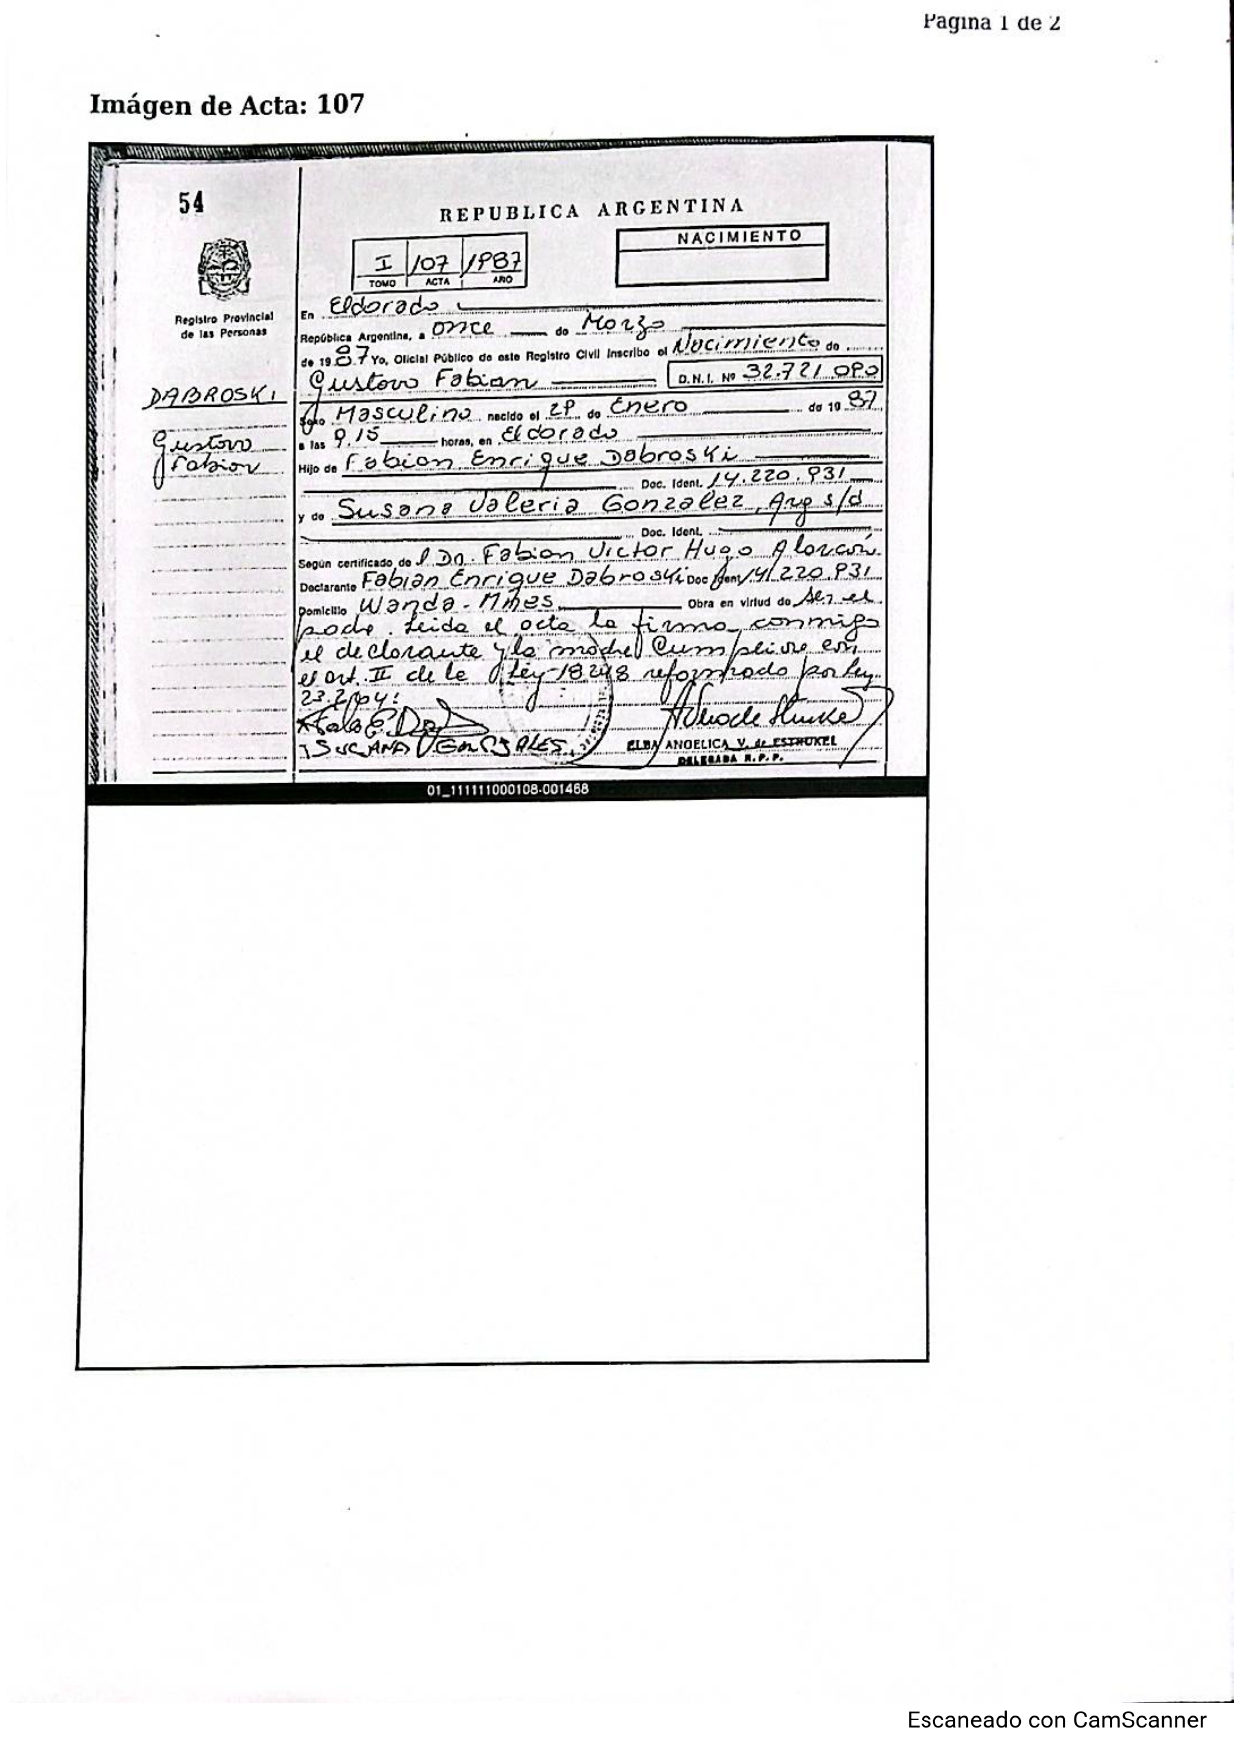 Página 1 de 2
Imágen de Acta: 107
54
REPUBLICA ARGENTINA
NACIMIENTO
I 107 1987
TOMO ACTA AÑO
Registro Provincial
de las Personas
En Eldorado
República Argentina, a once de Marzo
de 1987 Yo, Oficial Público de este Registro Civil inscribo el Nacimiento de
Gustavo Fabian D.N.I. Nº 32.721.090
DABROSKI
Gustavo
Fabian
Sexo Masculino nacido el 29 de Enero de 1987
a las 9,15 horas, en Eldorado
Hijo de Fabian Enrique Dabroski
Doc. Ident. 14.220.931
y de Susana Valeria Gonzalez, Arg s/d
Doc. Ident.
Según certificado de l Dn. Fabian Victor Hugo Alarcón
Declarante Fabian Enrique Dabroski Doc Ident 14.220.931
Domicilio Wanda - Mnes Obra en virtud de ser el
padre. Leida el acta la firma conmigo
el declarante y la madre con
el art. II de la Ley 18248 reformado por ley
23.264.
SUSANA V GONSALES
ELBA ANGELICA V. de ESTRUKEL
DELEGADA R. P. P.
01_111111000108-001468
Escaneado con CamScanner